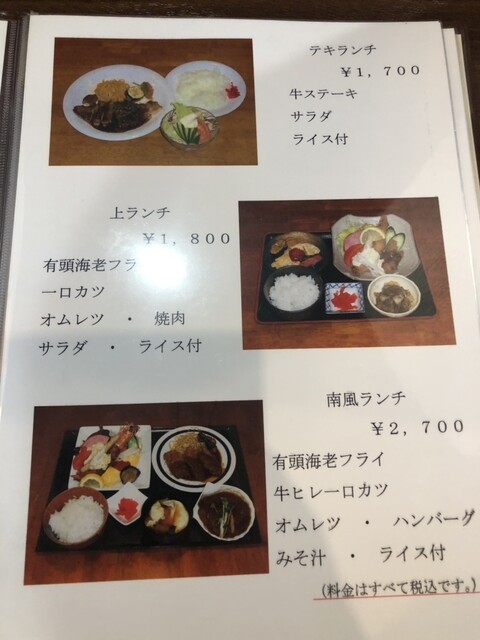 テキランチ
￥１，７００
牛ステーキ
サラダ
ライス付
上ランチ
￥１，８００
有頭海老フラ
一口カツ
オムレツ ・ 焼肉
サラダ ・ ライス付
南風ランチ
￥２，７００
有頭海老フライ
牛ヒレ一口カツ
オムレツ ・ ハンバーグ
みそ汁 ・ ライス付
(料金はすべて税込です。)